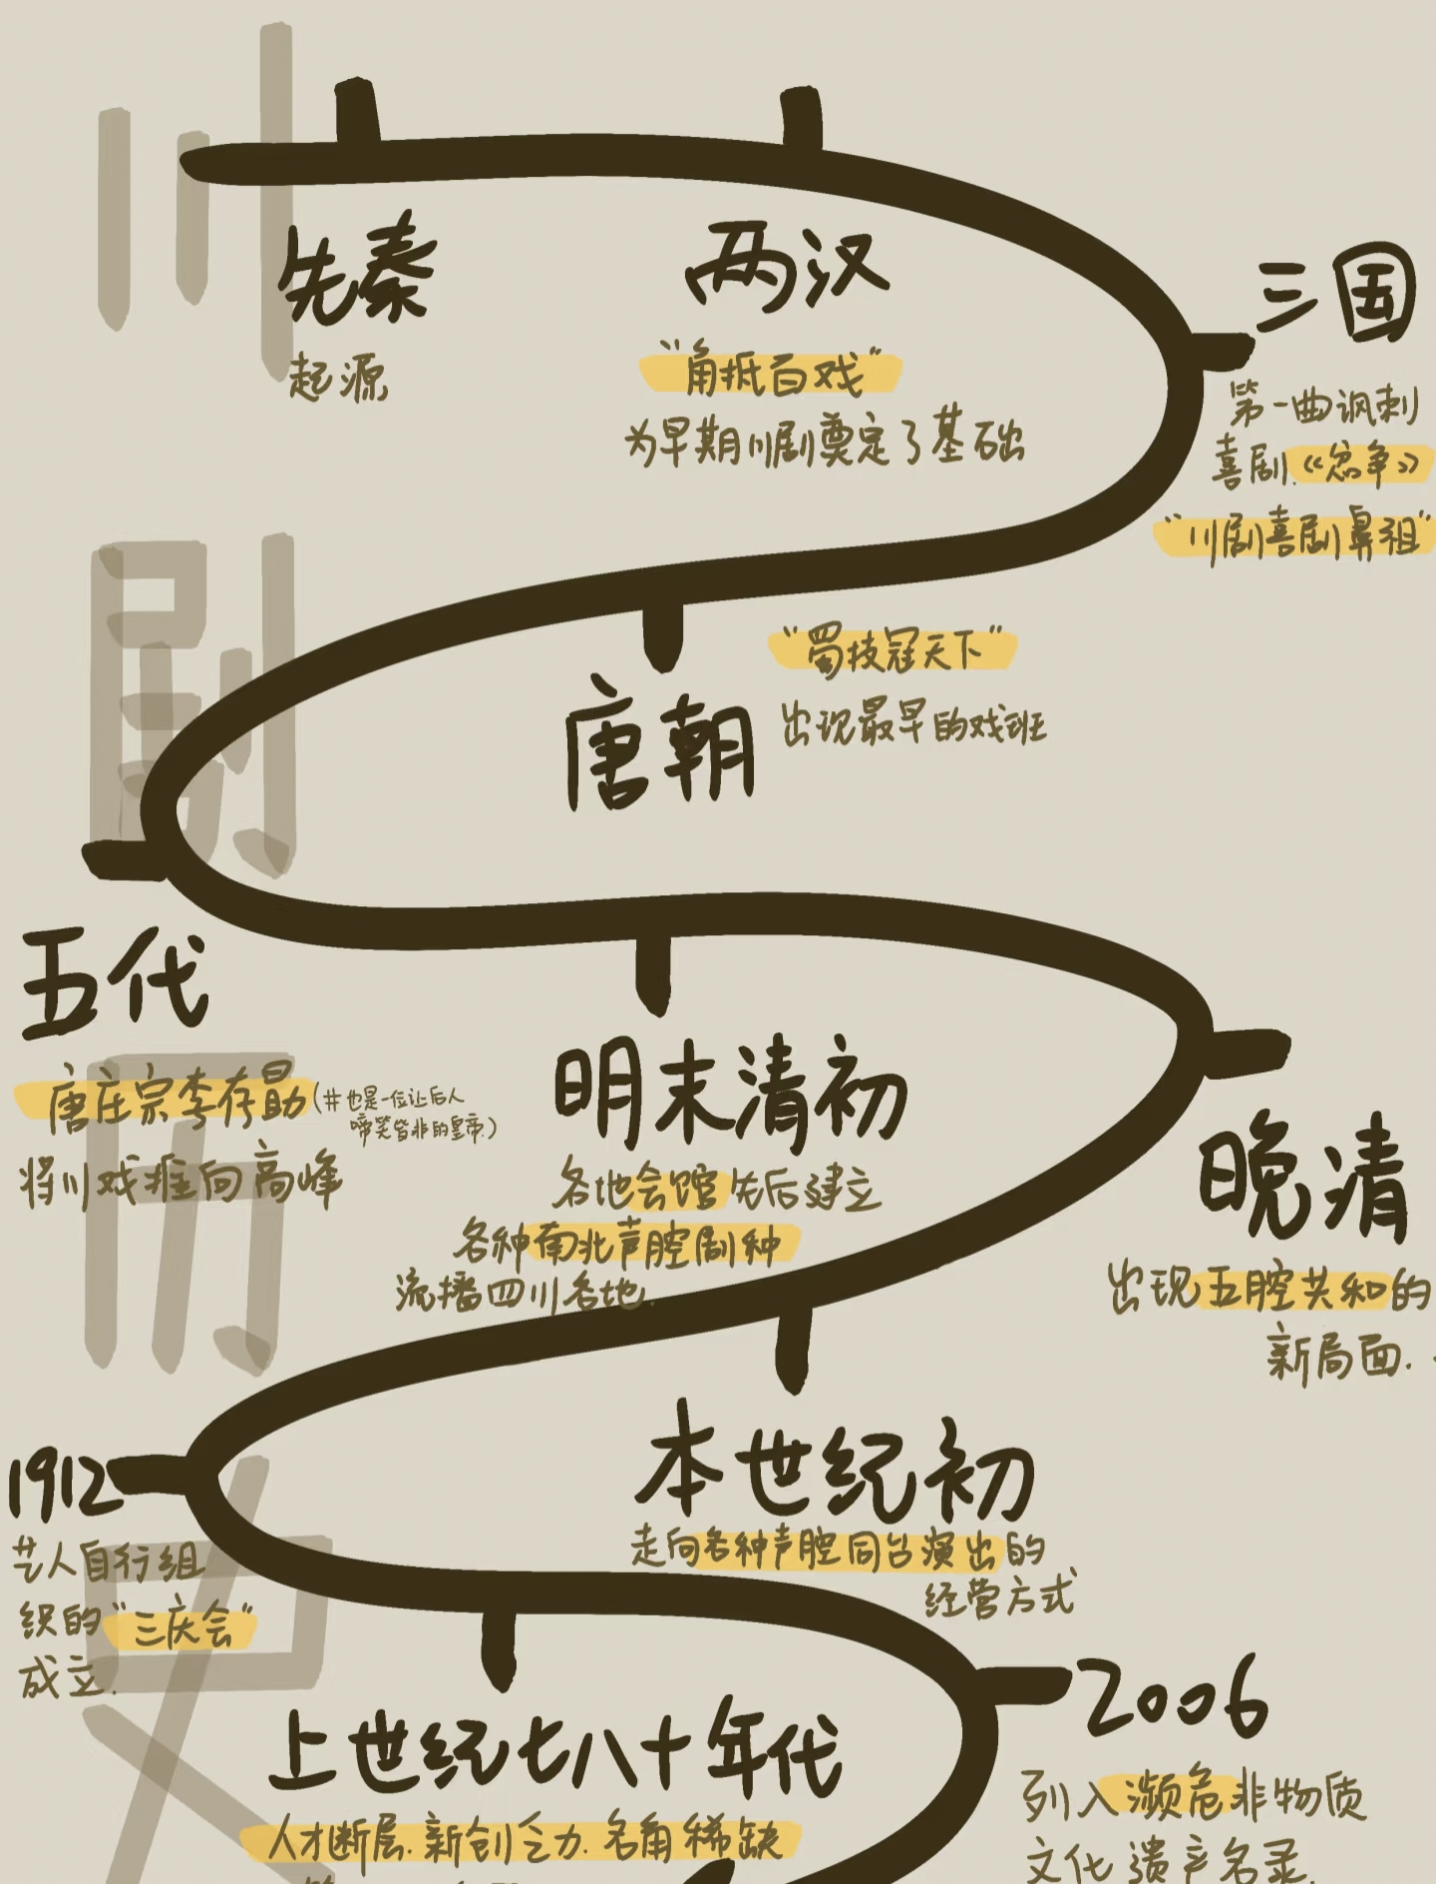 川剧历史
先秦
起源
两汉
“角抵百戏”
为早期川剧奠定了基础
三国
第一曲讽刺
喜剧.《忿争》
“川剧喜剧鼻祖”
唐朝
“蜀技冠天下”
出现最早的戏班
五代
唐庄宗李存勗(#也是一位让后人
啼笑皆非的皇帝.)
将川戏推向高峰
明末清初
各地会馆先后建立
各种南北声腔剧种
流播四川各地.
晚清
出现五腔共和的
新局面.
本世纪初
走向各种声腔同台演出的
经营方式
1912
艺人自行组
织的“三庆会”
成立.
上世纪七八十年代
人才断层.新创乏力.名角稀缺
2006
列入濒危非物质
文化遗产名录.